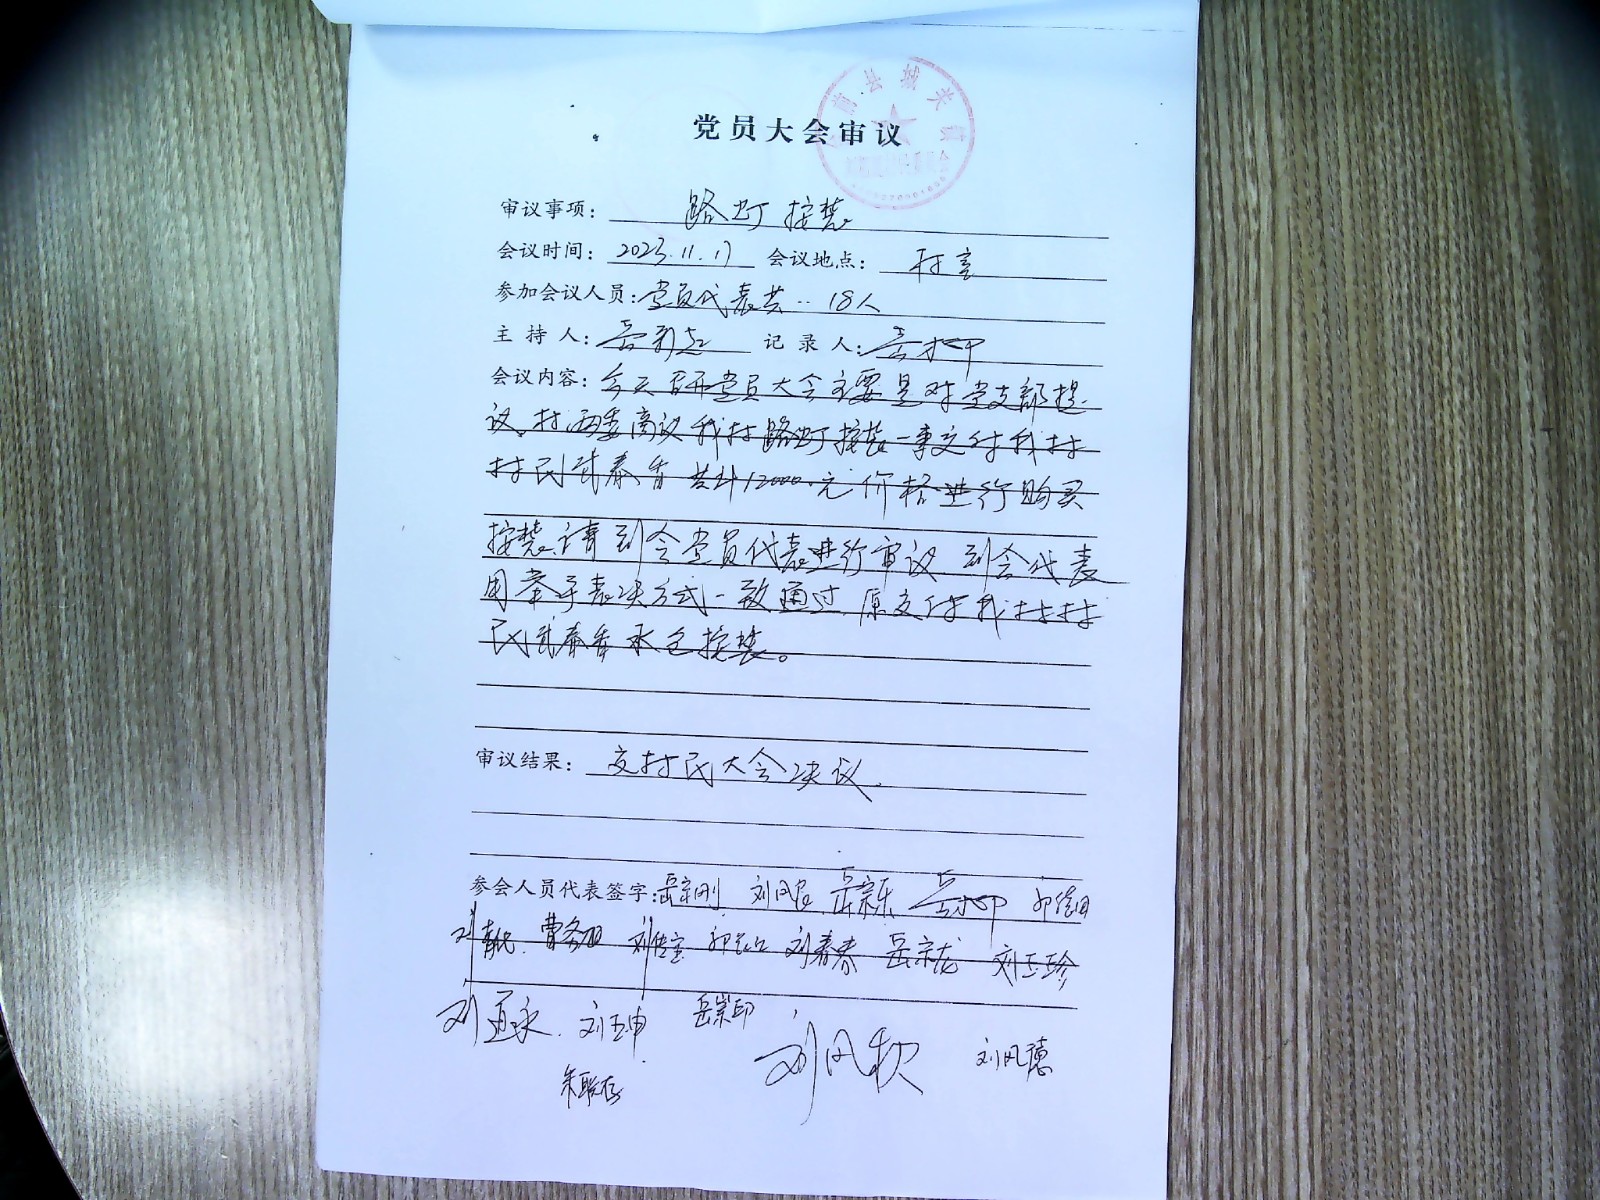 党员大会审议
县城关镇
审议事项: 路灯按装
会议时间: 2023.11.17 会议地点: 村室
参加会议人员: 党员代表共 18人
主持人: 岳彩 记录人: 岳
会议内容: 今天召开党员大会主要是对党支部提
议、村两委商议我村路灯按装一事交付我村
村民武春香共计12000.元价格进行购买
按装.请到会党员代表进行审议 到会代表
用举手表决方式一致通过.原交付我村村
民武春香承包按装。
审议结果: 交村民大会决议.
参会人员代表签字: 岳宗刚 刘风启 岳宗乐 岳
刘 曹务 刘传宝 刘春春 岳宗龙 刘玉珍
刘道永. 刘玉申 岳崇印
刘风钦 刘风德
朱联存